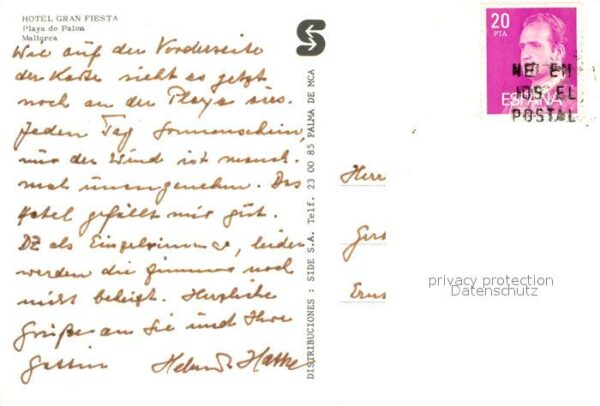 HOTEL GRAN FIESTA
Playa de Palma
Mallorca
Wie auf der Vorderseite
der Karte sieht es jetzt
noch an der Playa aus.
Jeden Tag Sonnenschein,
nur der Wind ist manch-
mal unangenehm. Das
Hotel gefällt mir gut.
DZ als Einzelzimmer, leider
werden die Zimmer noch
nicht beheizt. Herzliche
Grüße an Sie und Ihre
Gattin
DISTRIBUCIONES : SIDE S.A. Telf. 23 00 85 PALMA DE MCA
S
20
PTA
ESPAÑA
EN
EL
POSTAL
Herr
privacy protection
Datenschutz